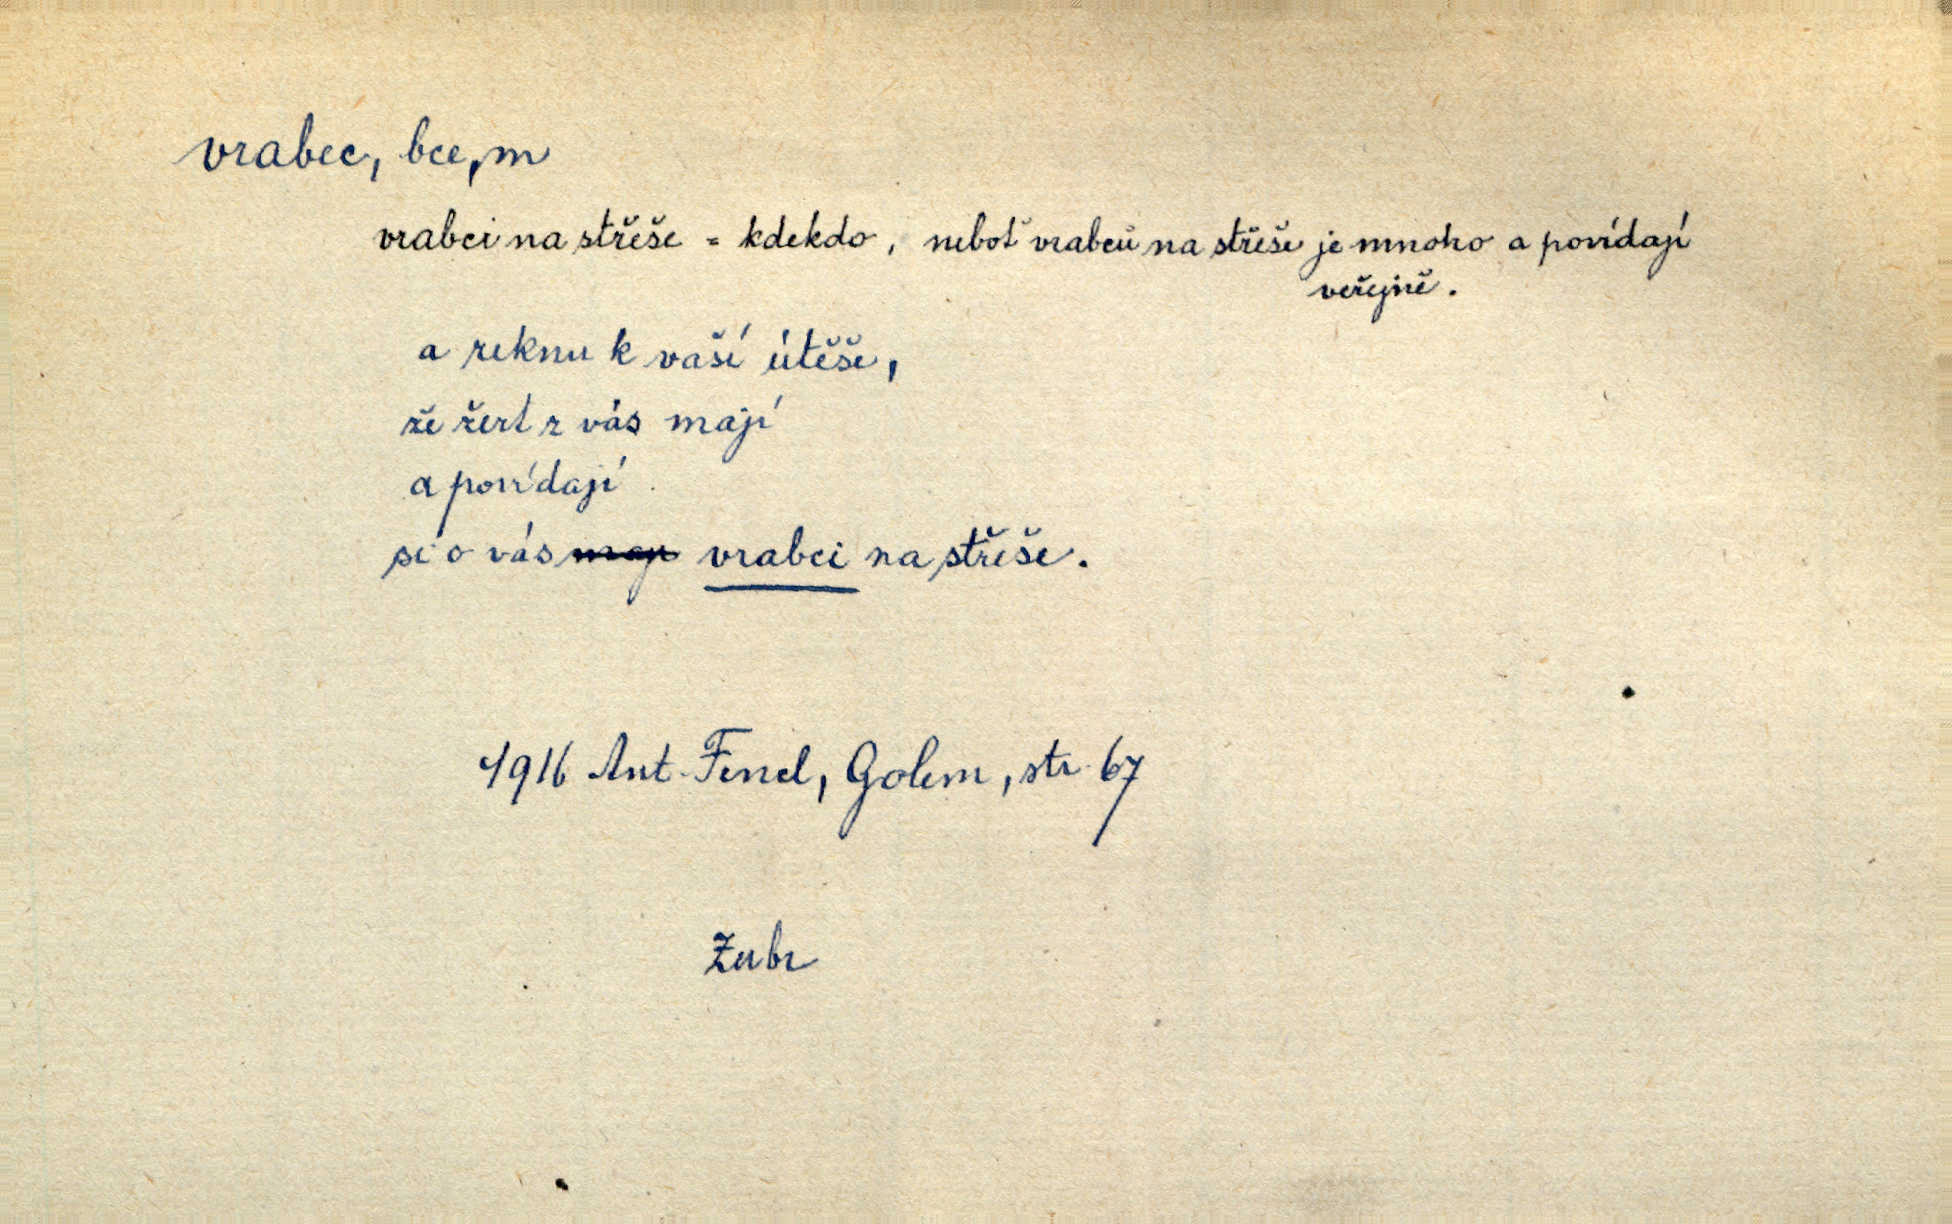 vrabec, bce, m
vrabci na střeše = kdekdo, neboť vrabců na střeše je mnoho a povídají
veřejně.
a reknu k vaší útěše,
že žert z vás mají
a povídají
si o vás maji vrabci na střeše.
1916 Ant. Fencl, Golem, str. 67
Zubr